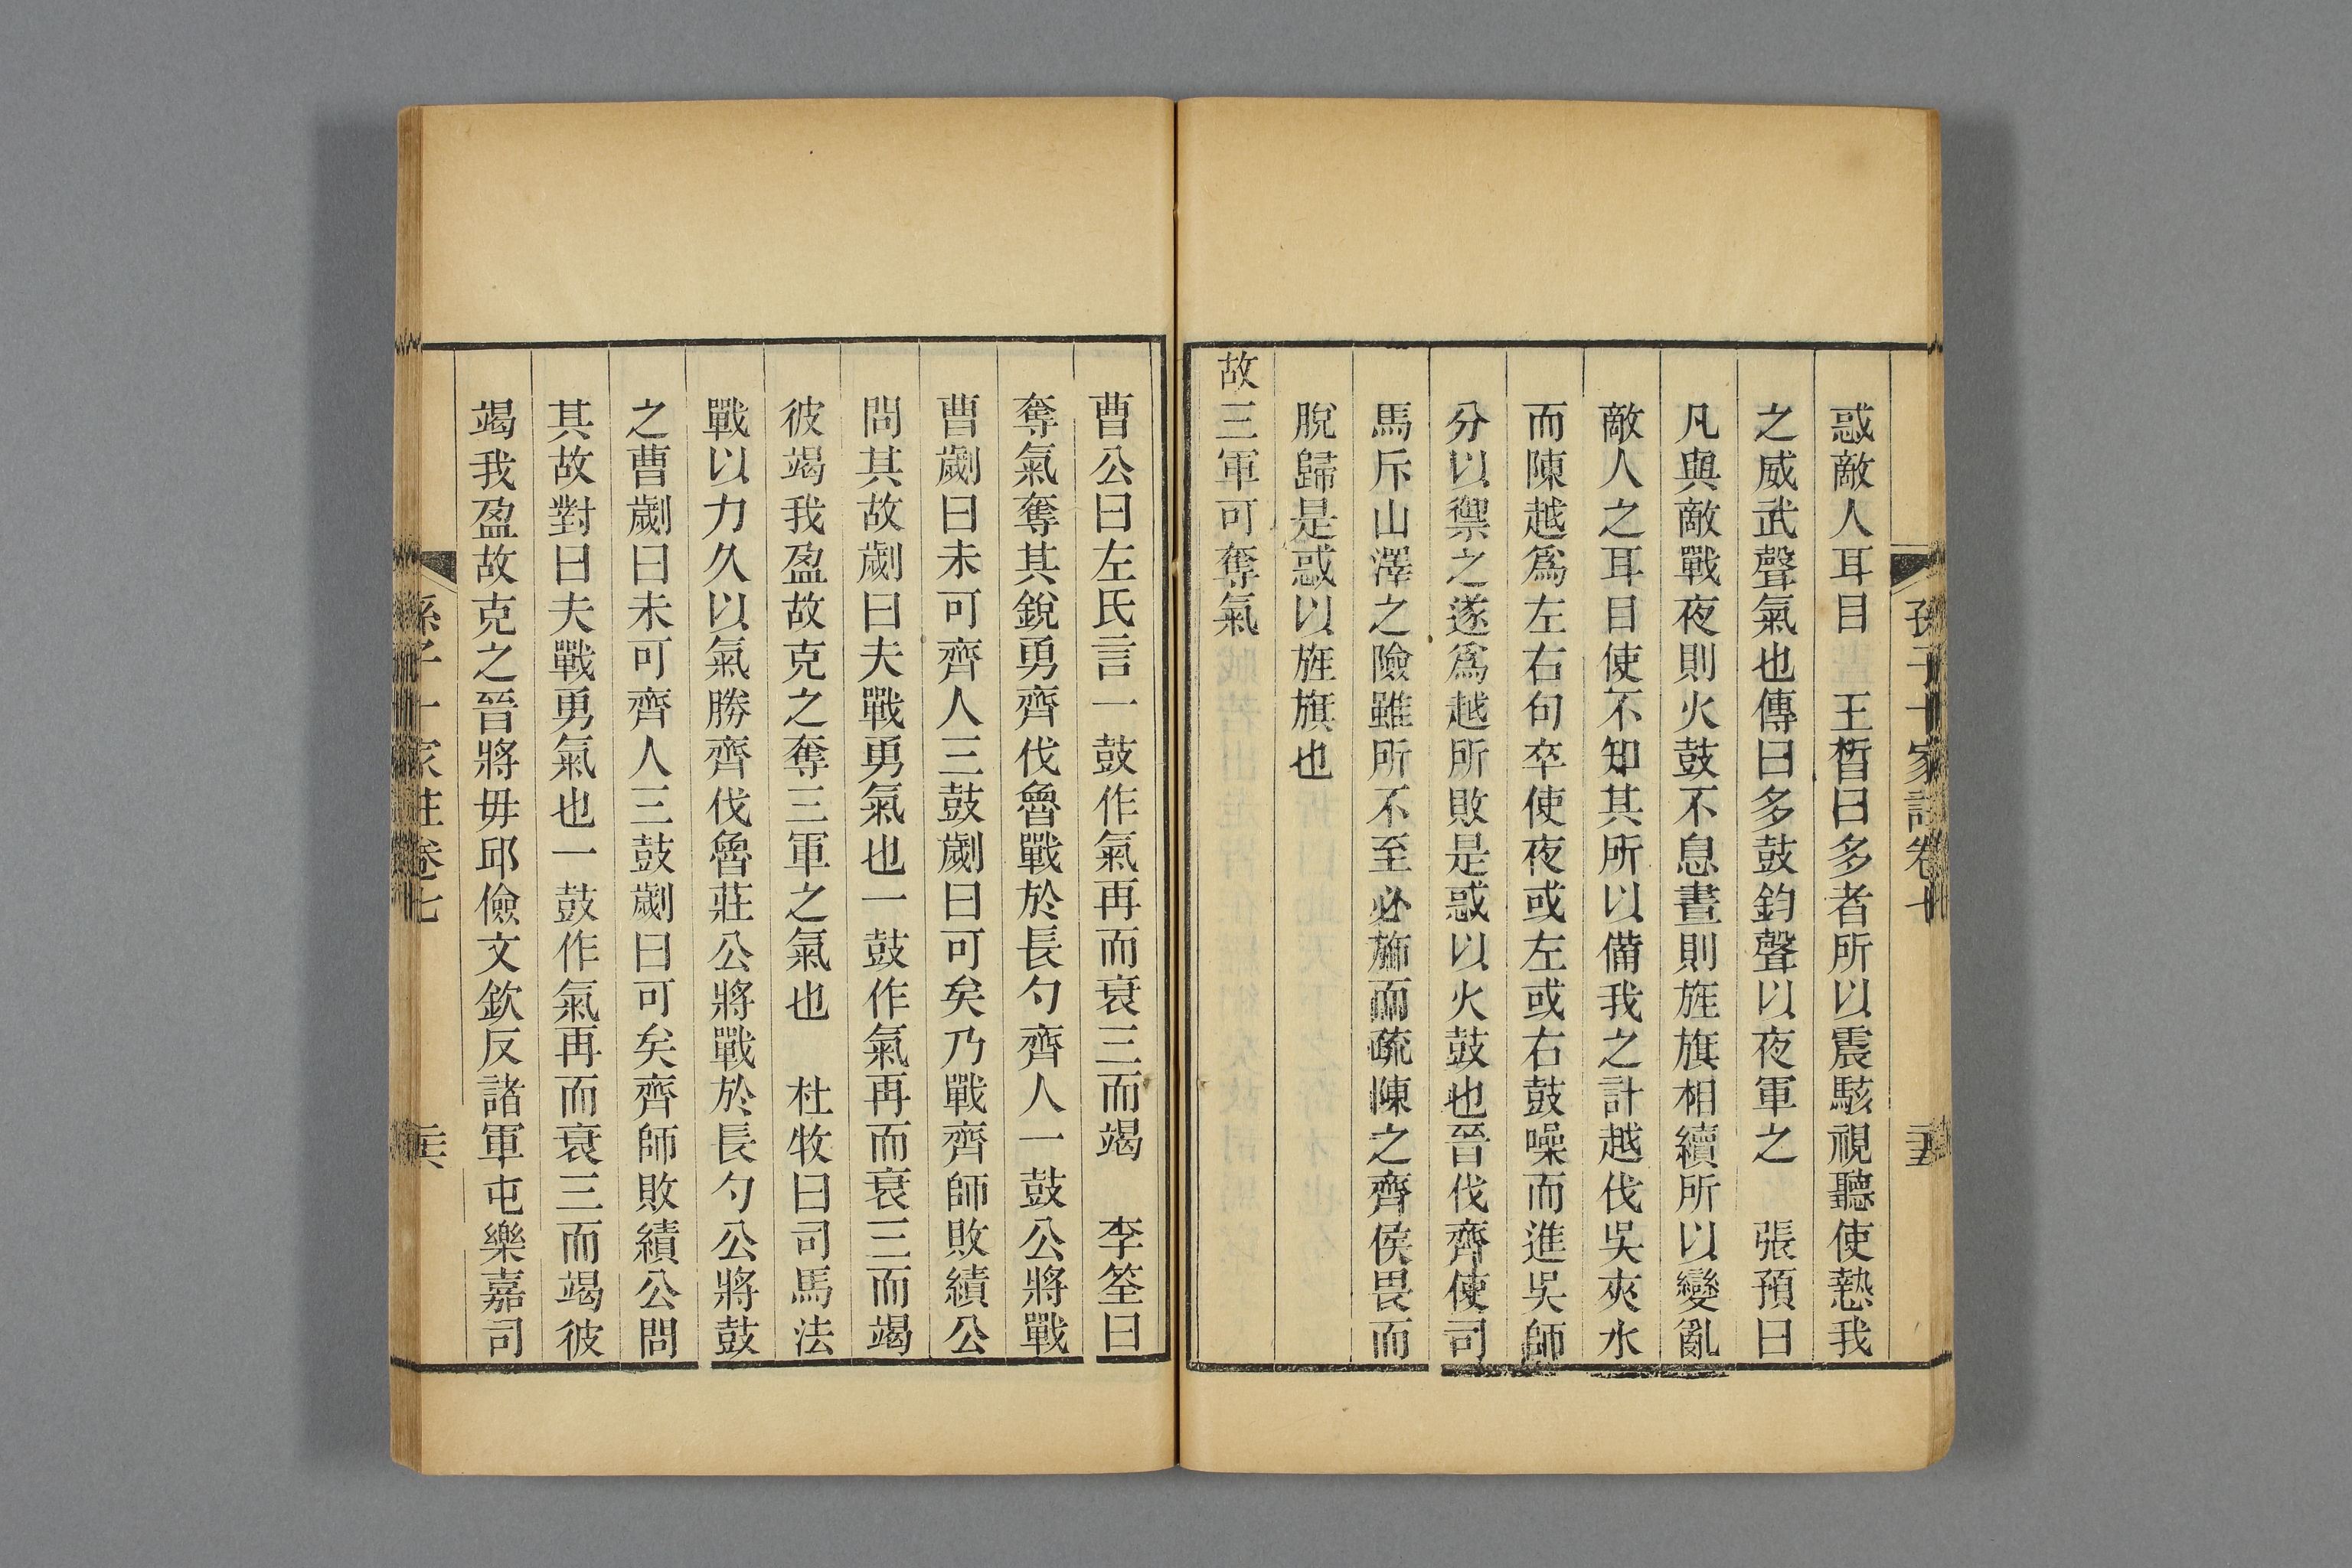 惑敵人耳目　王晳曰多者所以震駭視聽使熱我
之威武聲氣也傳曰多鼓鈞聲以夜軍之　張預曰
凡與敵戰夜則火鼓不息晝則旌旗相續所以變亂
敵人之耳目使不知其所以備我之計越伐吳夾水
而陳越爲左右句卒使夜或左或右鼓噪而進吳師
分以禦之遂爲越所敗是惑以火鼓也晉伐齊使司
馬斥山澤之險雖所不至必斾而疏陳之齊侯畏而
脫歸是惑以旌旗也
故三軍可奪氣
曹公曰左氏言一鼓作氣再而衰三而竭　李筌曰
奪氣奪其銳勇齊伐魯戰於長勺齊人一鼓公將戰
曹劌曰未可齊人三鼓劌曰可矣乃戰齊師敗績公
問其故劌曰夫戰勇氣也一鼓作氣再而衰三而竭
彼竭我盈故克之奪三軍之氣也　杜牧曰司馬法
戰以力久以氣勝齊伐魯莊公將戰於長勺公將鼓
之曹劌曰未可齊人三鼓劌曰可矣齊師敗績公問
其故對曰夫戰勇氣也一鼓作氣再而衰三而竭彼
竭我盈故克之晉將毋邱儉文欽反諸軍屯樂嘉司
孫子十家註卷七